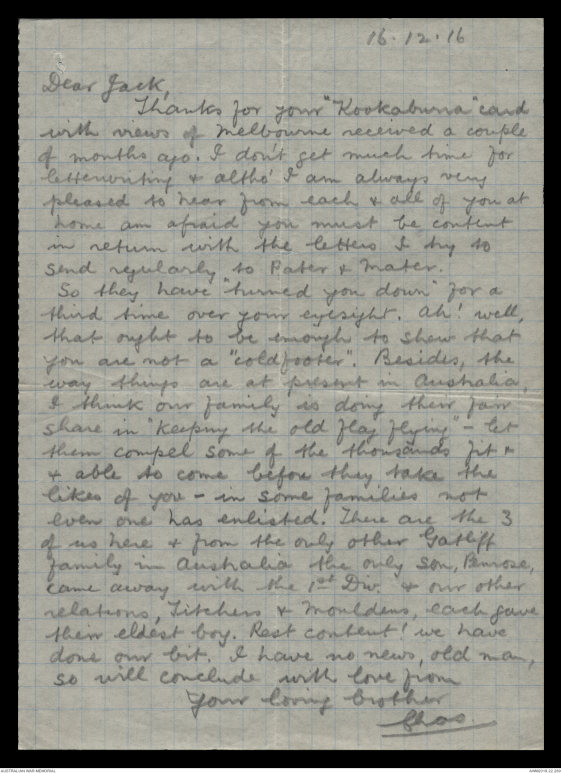 16.12.16
Dear Jack,
Thanks for your "Kookaburra" card
with views of Melbourne received a couple
of months ago. I don't get much time for
letterwriting & altho' I am always very
pleased to hear from each & all of you at
home am afraid you must be content
in return with the letters I try to
send regularly to Pater & Mater.
So they have "turned you down" for a
third time over your eyesight. Ah! well,
that ought to be enough to shew that
you are not a "coldfooter". Besides, the
way things are at present in Australia,
I think our family is doing their fair
share in "keeping the old flag flying" – let
them compel some of the thousands fit &
& able to come before they take the
likes of you – in some families not
even one has enlisted. There are the 3
of us here & from the only other Gatliff
family in Australia the only son, Penrose,
came away with the 1st Div. & our other
relations, Titchers & Mouldens, each gave
their eldest boy. Rest content! we have
done our bit. I have no news, old man,
so will conclude with love from
Your loving brother
Chas.
AUSTRALIAN WAR MEMORIAL